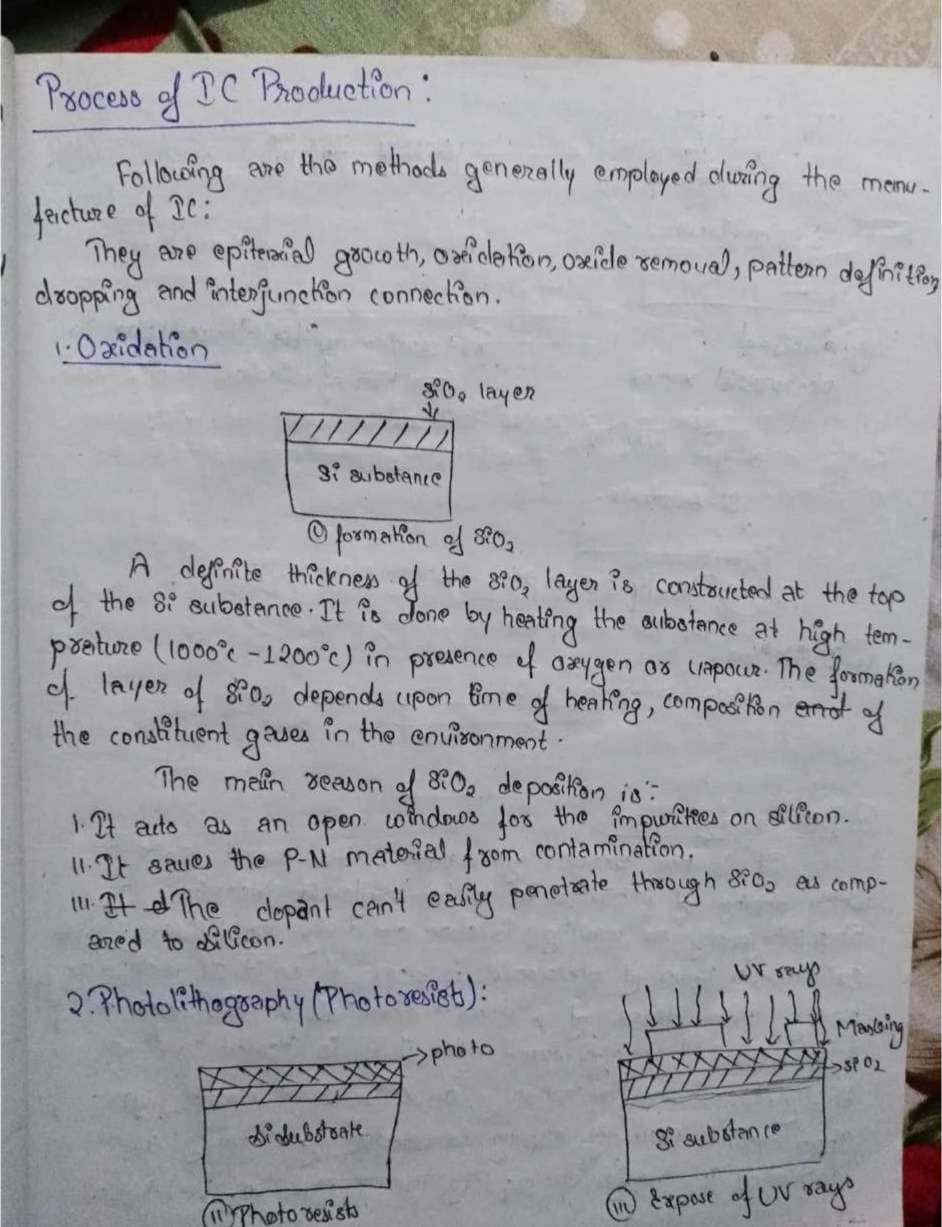 Process of IC Production:
Following are the methods generally employed during the manu-
facture of IC:
They are epitaxial growth, oxidation, oxide removal, pattern definition,
dropping and interjunction connection.
1. Oxidation
SiO2 layer
Si substance
(i) formation of SiO2
A definite thickness of the SiO2 layer is constructed at the top
of the Si substance. It is done by heating the substance at high tem-
prature (1000°c - 1200°c) in presence of oxygen or vapour. The formation
of layer of SiO2 depends upon time of heating, composition of
the constituent gases in the environment.
The main reason of SiO2 deposition is:-
I. It acts as an open windows for the impurities on silicon.
II. It saves the P-N material from contamination.
III. The dopant can't easily penetrate through SiO2 as comp-
ared to silicon.
2. Photolithography (Photoresists):
UV rays
Masking
→photo
→SiO2
Si substrate
Si substance
(ii) Photo resists
(iii) Expose of UV rays